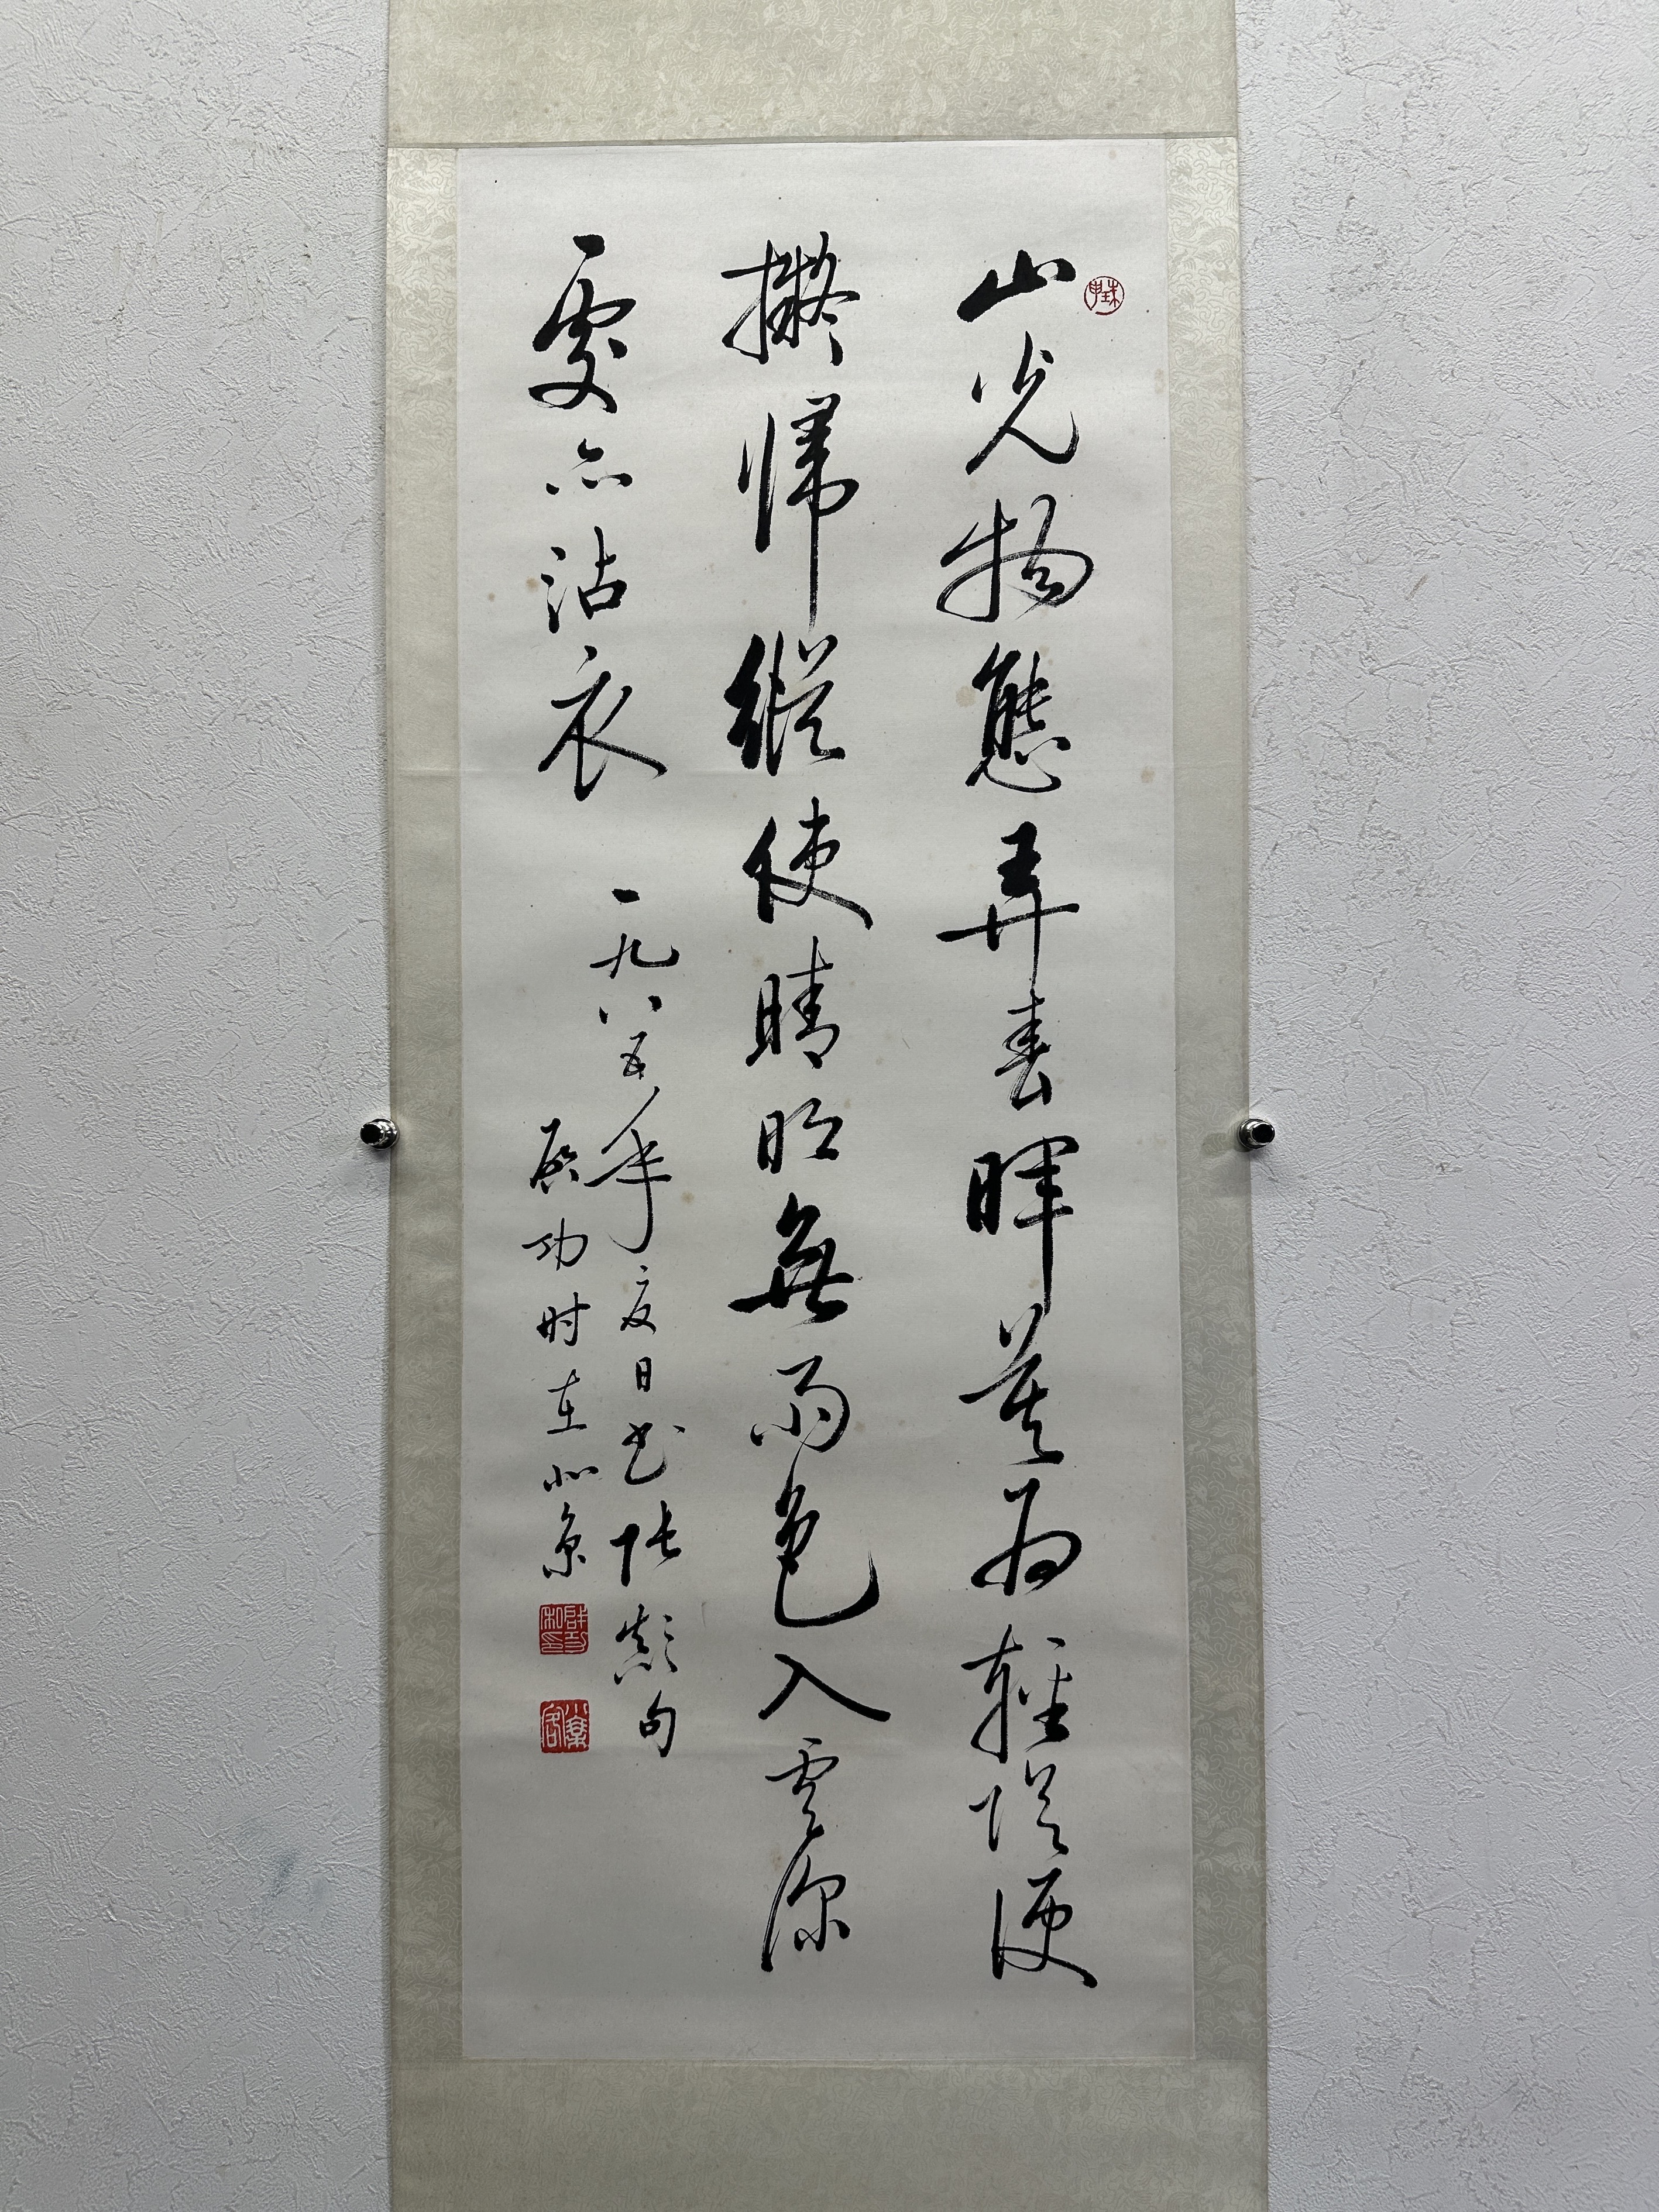 山光物態弄春暉莫為輕陰便
擬歸縱使晴明無雨色入雲深
處亦沾衣
一九八五年夏日书张颠句
启功时在北京